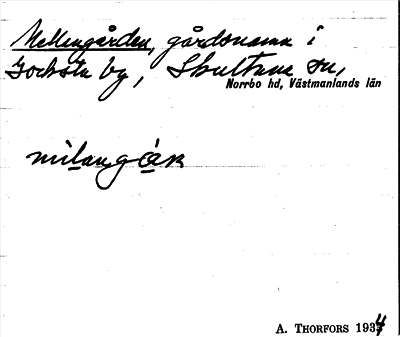 Mellangården, gårdsnamn i
Gocksta by, Skultuna sn,
Norrbo hd, Västmanlands län
A. THORFORS 1934